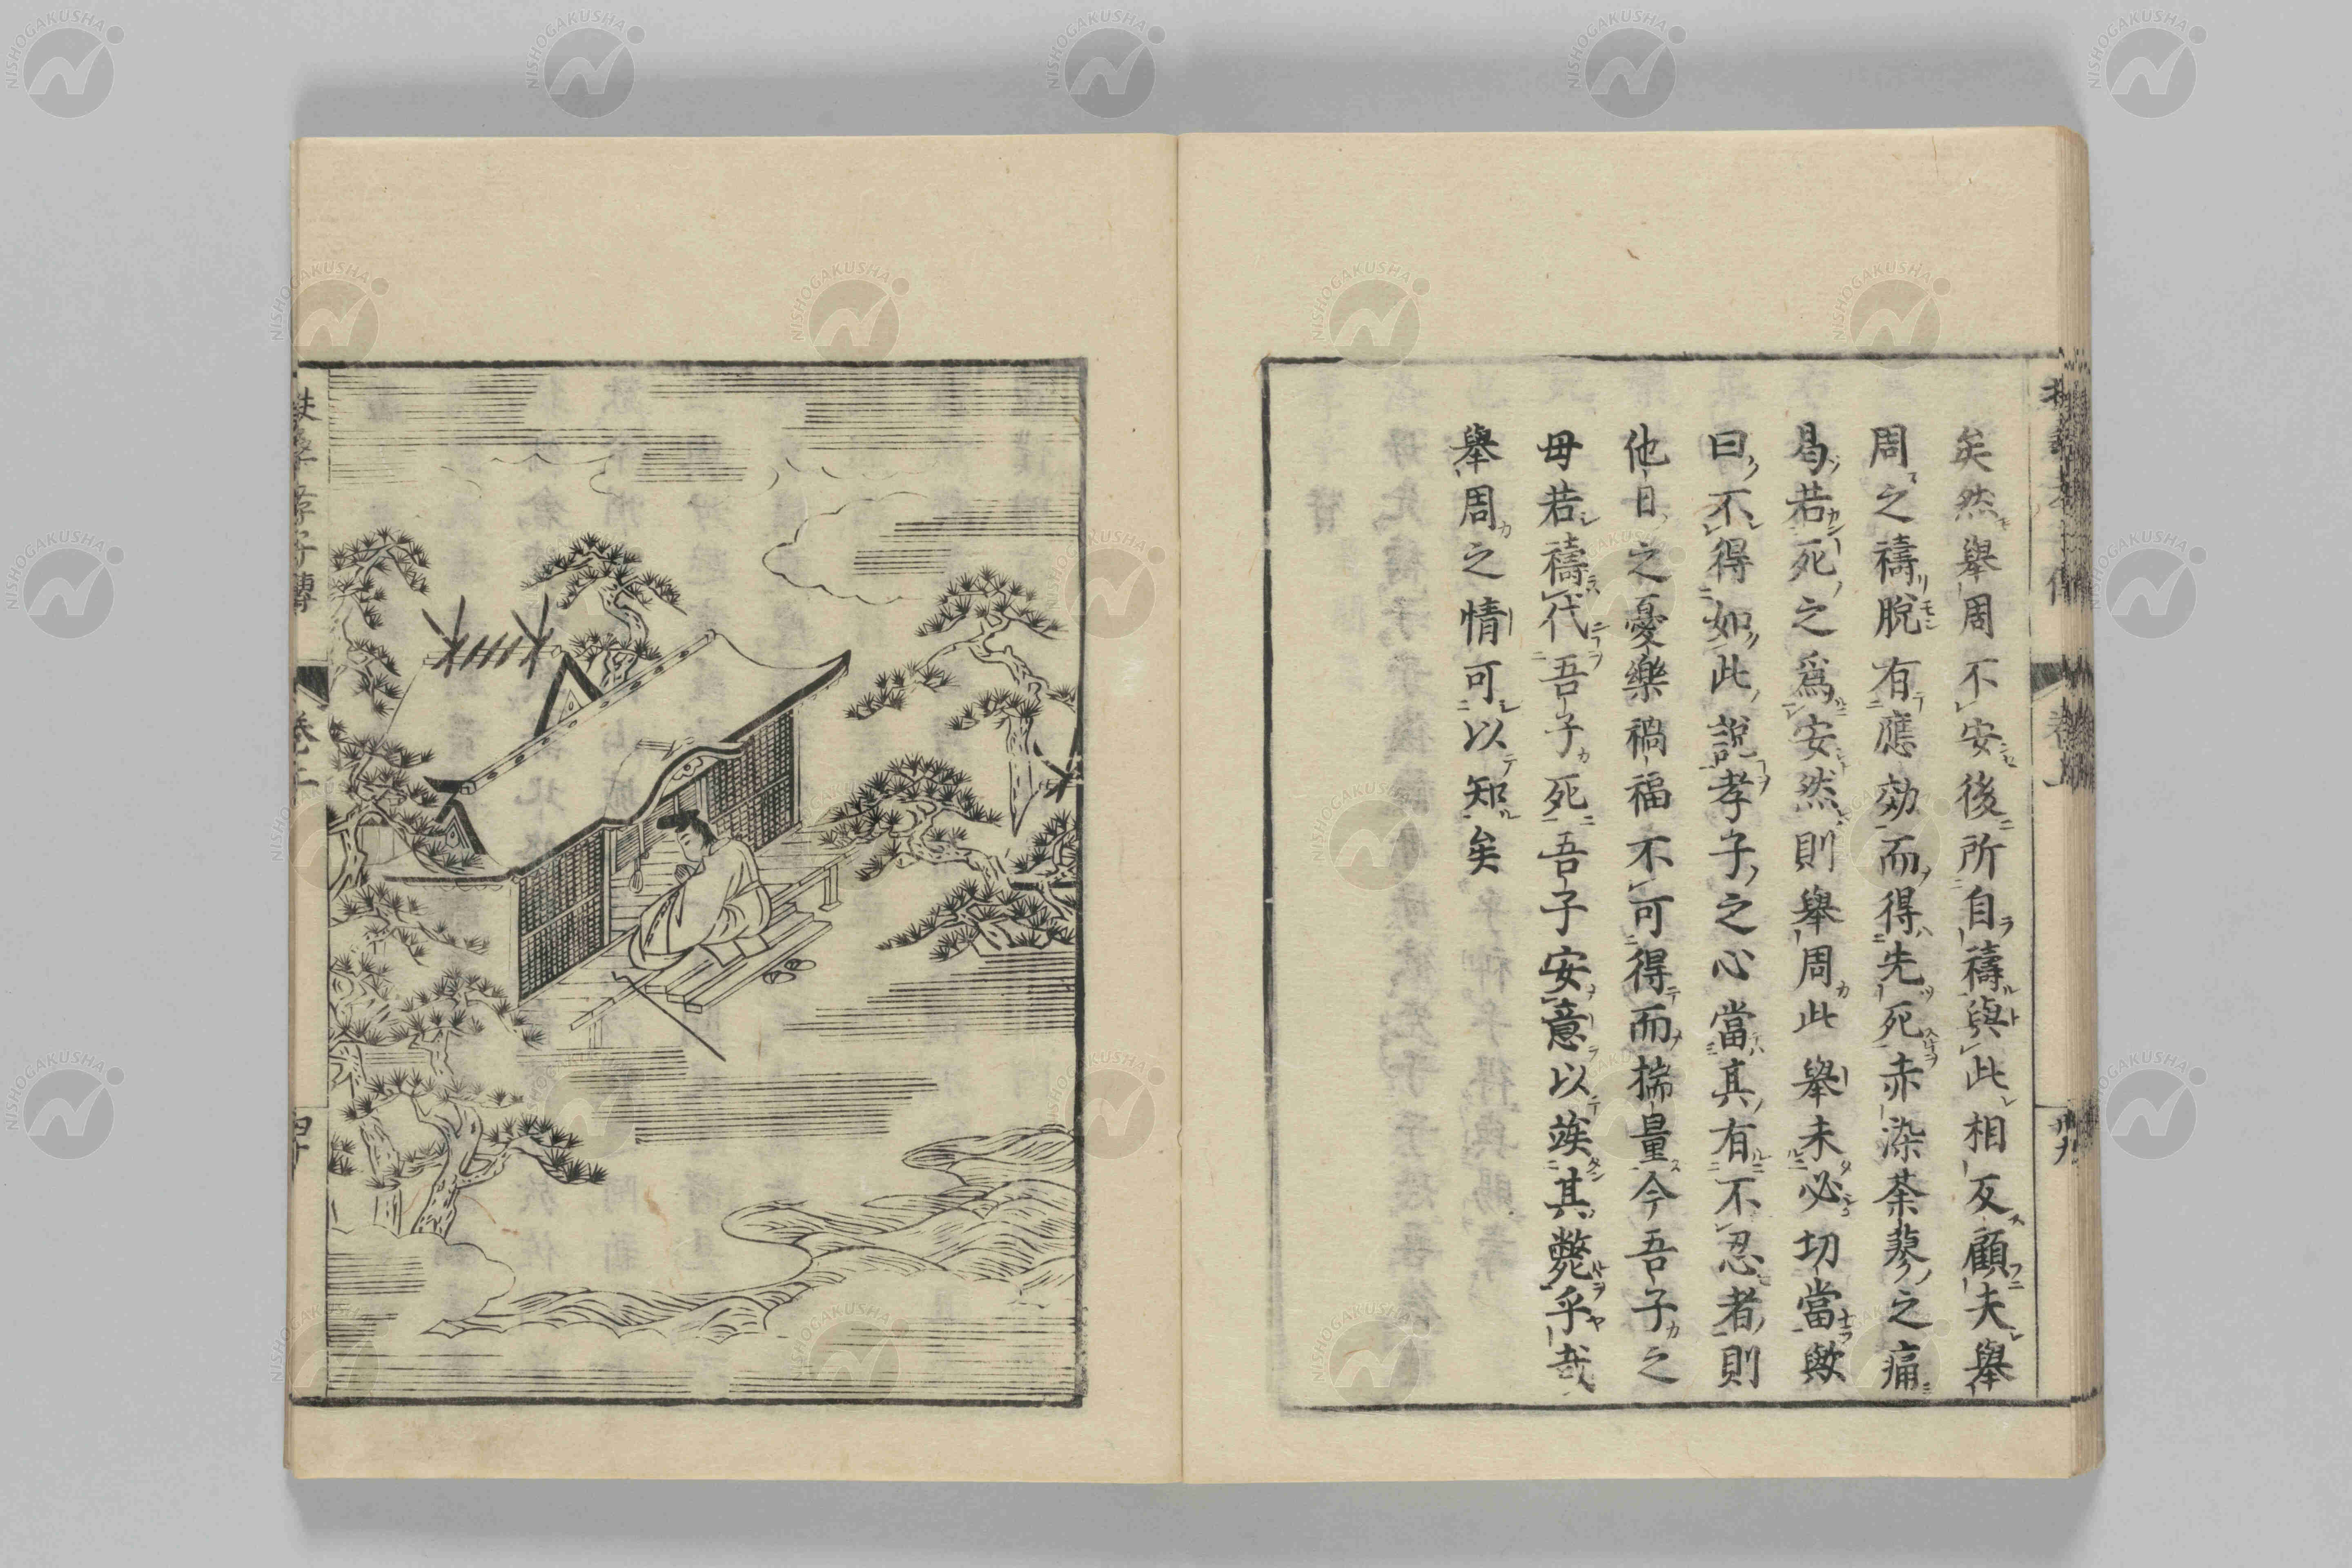 矣然舉周不安後所自禱與此相反顧夫舉
周之禱脫有應効而得先死赤染荼蓼之痛
曷若死之爲安然則舉周此舉未必切當歟
曰不得如此說孝子之心當其有不忍者則
他日之憂樂禍福不可得而揣量今吾子之
母若禱代吾子死吾子安意以竢其斃乎哉
舉周之情可以知矣
孝子傳
卷上
四十
NISHOGAKUSHA